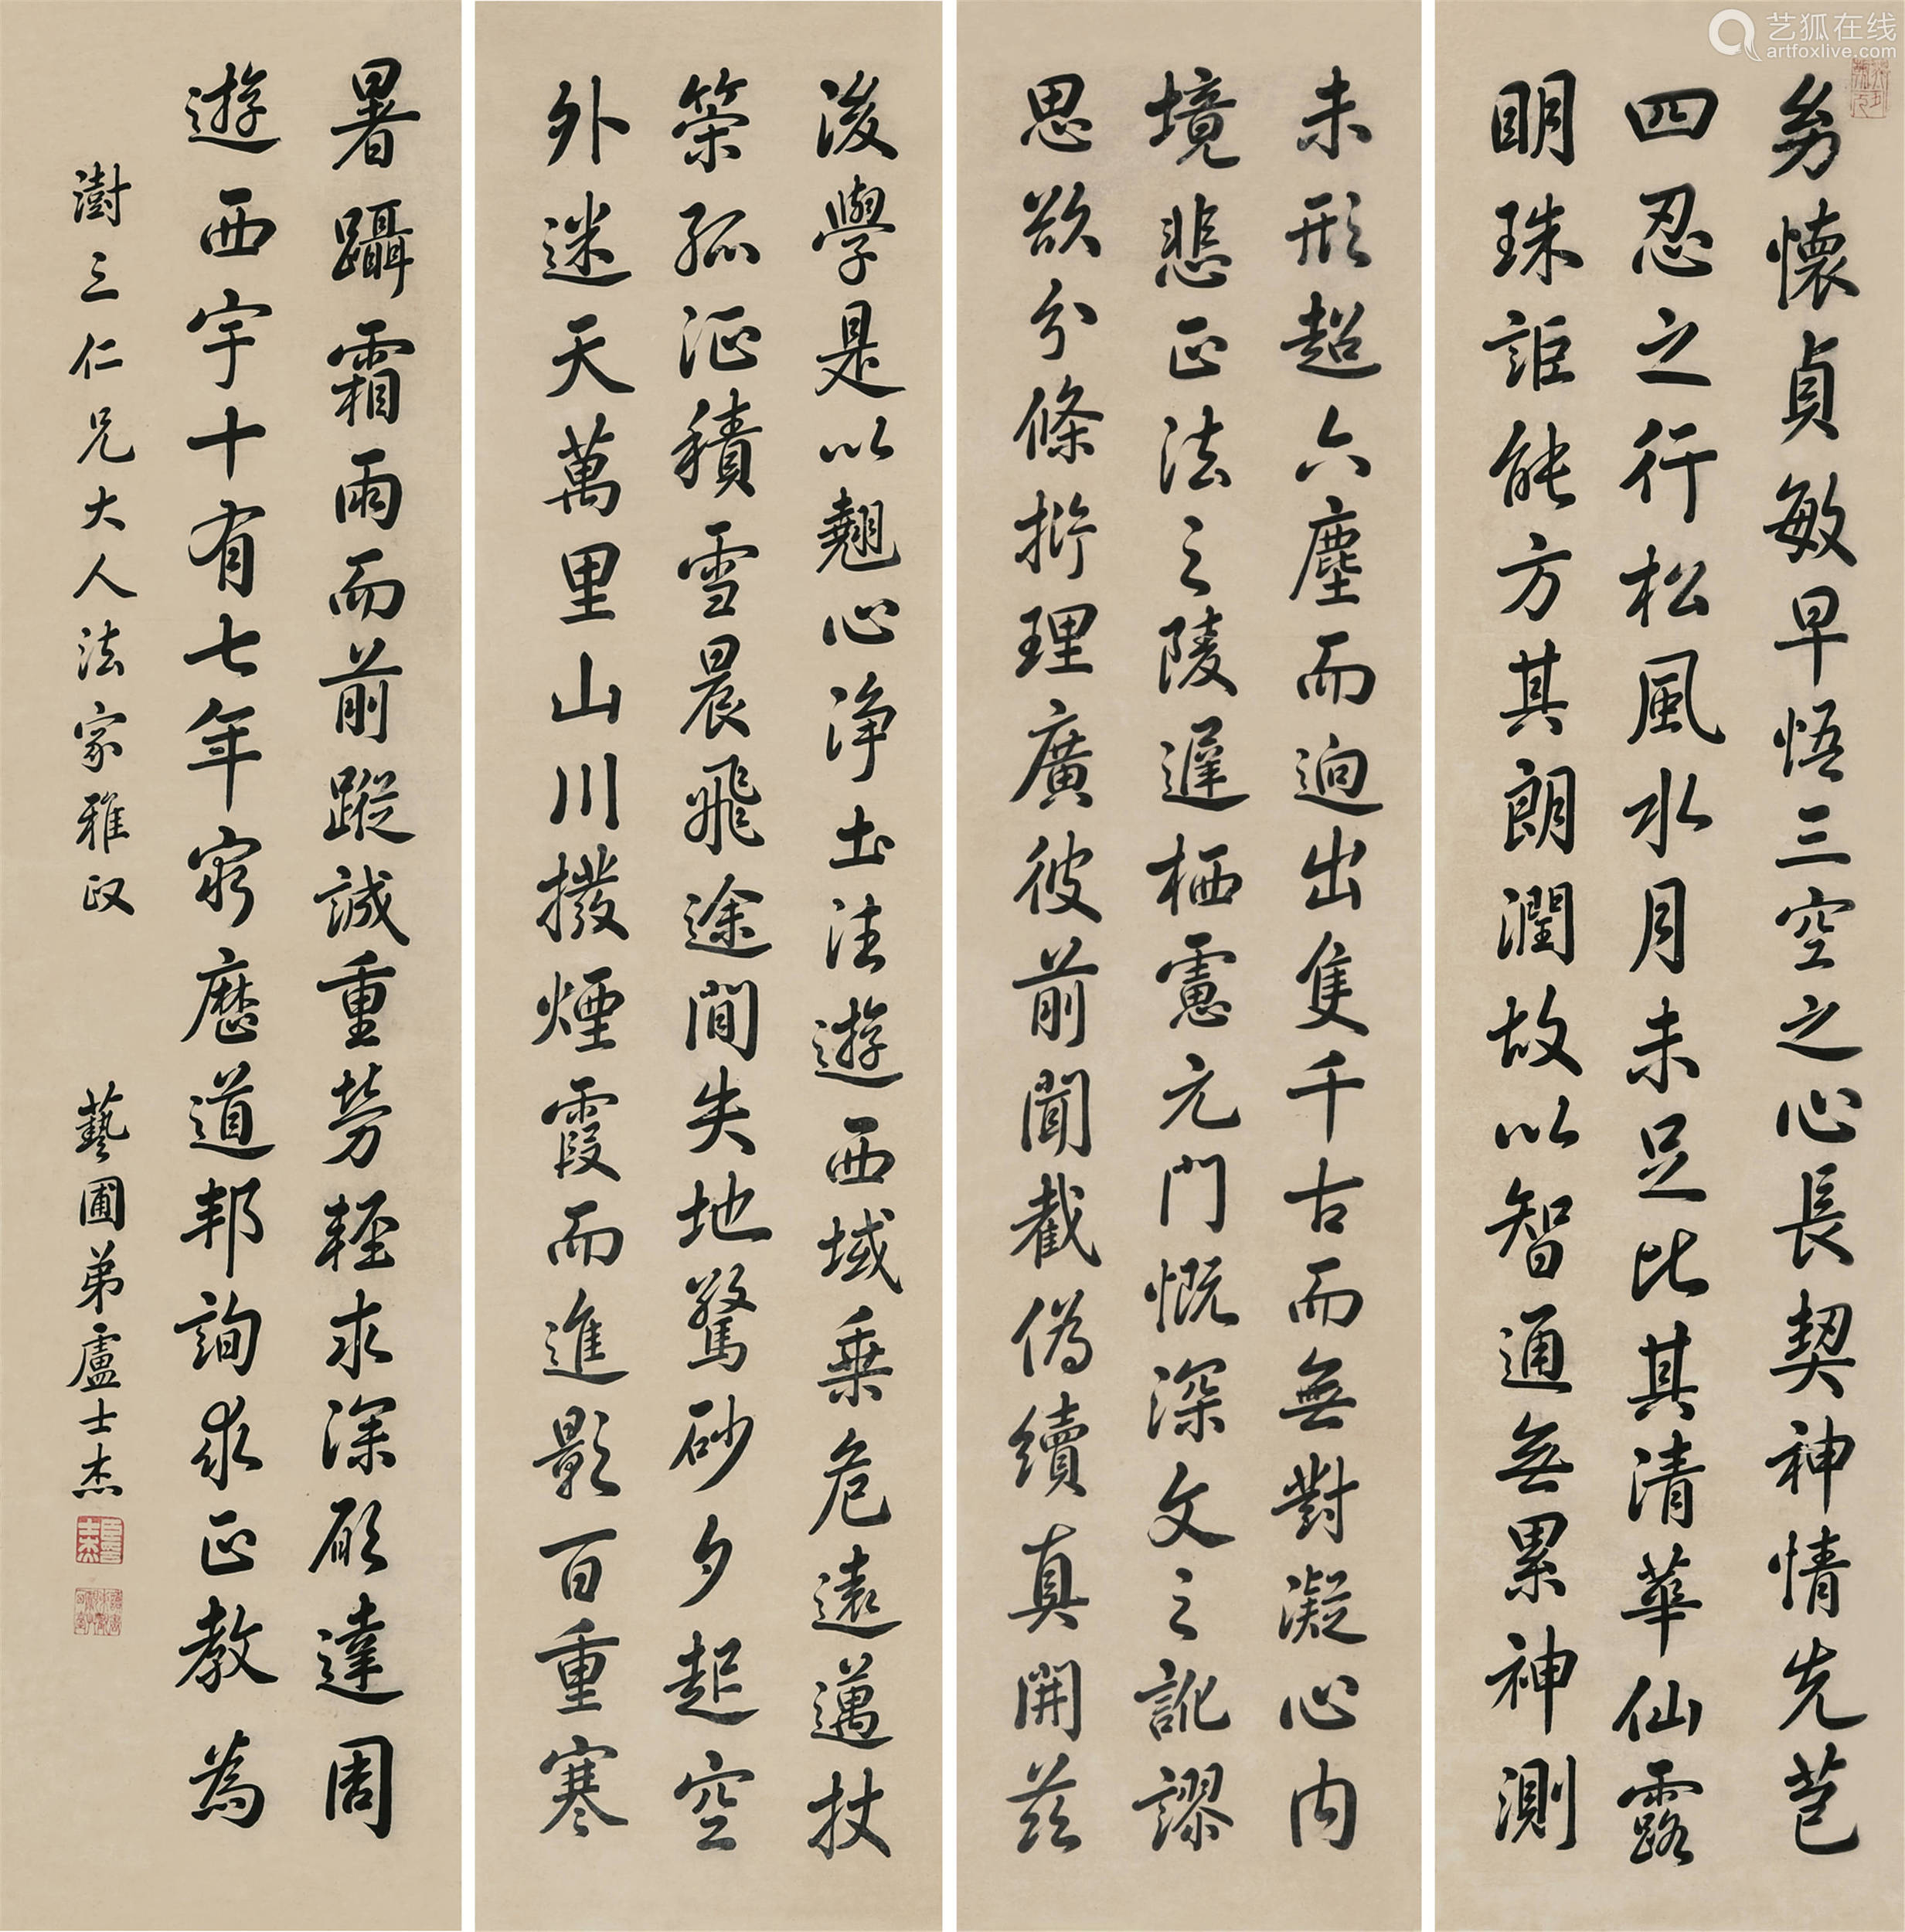 艺狐在线
artfoxlive.com
幼懷貞敏早悟三空之心長契神情先苞
四忍之行松風水月未足比其清華仙露
明珠詎能方其朗潤故以智通無累神測
未形超六塵而迥出隻千古而無對凝心內
境悲正法之陵遲栖慮元門慨深文之訛謬
思欲分條析理廣彼前聞截偽續真開茲
後學是以翹心淨土法遊西域乗危遠邁杖
策孤征積雪晨飛途閒失地驚砂夕起空
外迷天萬里山川撥煙霞而進影百重寒
暑躡霜雨而前蹤誠重勞輕求深願達周
遊西宇十有七年窮歷道邦詢求正教為
澍三仁兄大人法家雅政
藝圃弟盧士杰